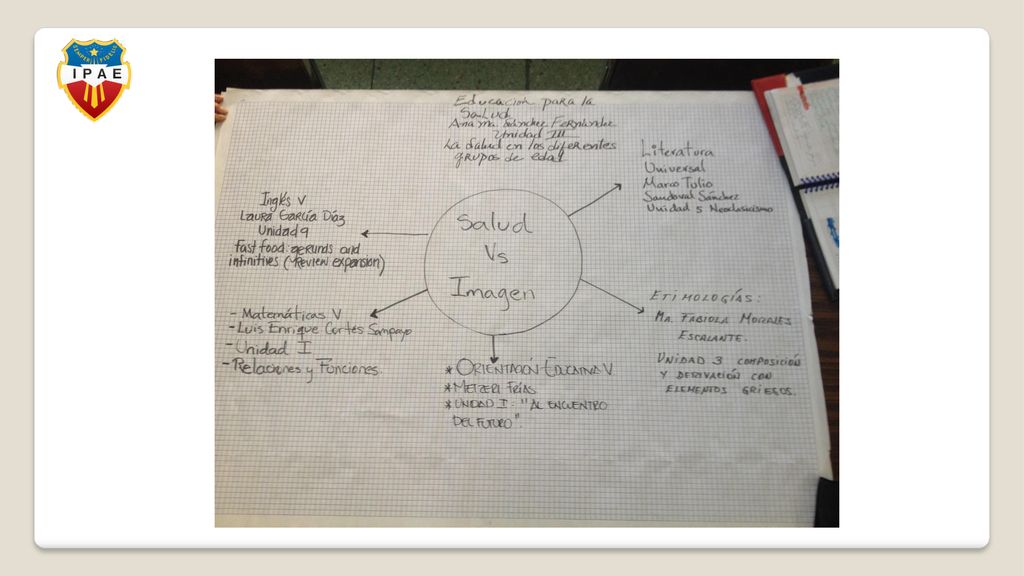 SEMPER FIDELIS
IPAE
Educación para la
Salud
Ana Ma. Sánchez Fernández
Unidad III
La salud en los diferentes
grupos de edad
Literatura
Universal
Marco Tulio
Sandoval Sánchez
Unidad 5 Neoclasicismo
Inglés V
Laura García Díaz
Unidad 9
Fast food: gerunds and
infinitives (Review expansion)
Salud
Vs
Imagen
ETIMOLOGÍAS:
MA. FABIOLA MORALES
ESCALANTE.
UNIDAD 3 COMPOSICIÓN
Y DERIVACIÓN CON
ELEMENTOS GRIEGOS.
- Matemáticas V
- Luis Enrique Cortés Sampayo
- Unidad I
- Relaciones y Funciones.
* ORIENTACIÓN EDUCATIVA V
* METZERI FRÍAS
* UNIDAD I: "AL ENCUENTRO
DEL FUTURO".